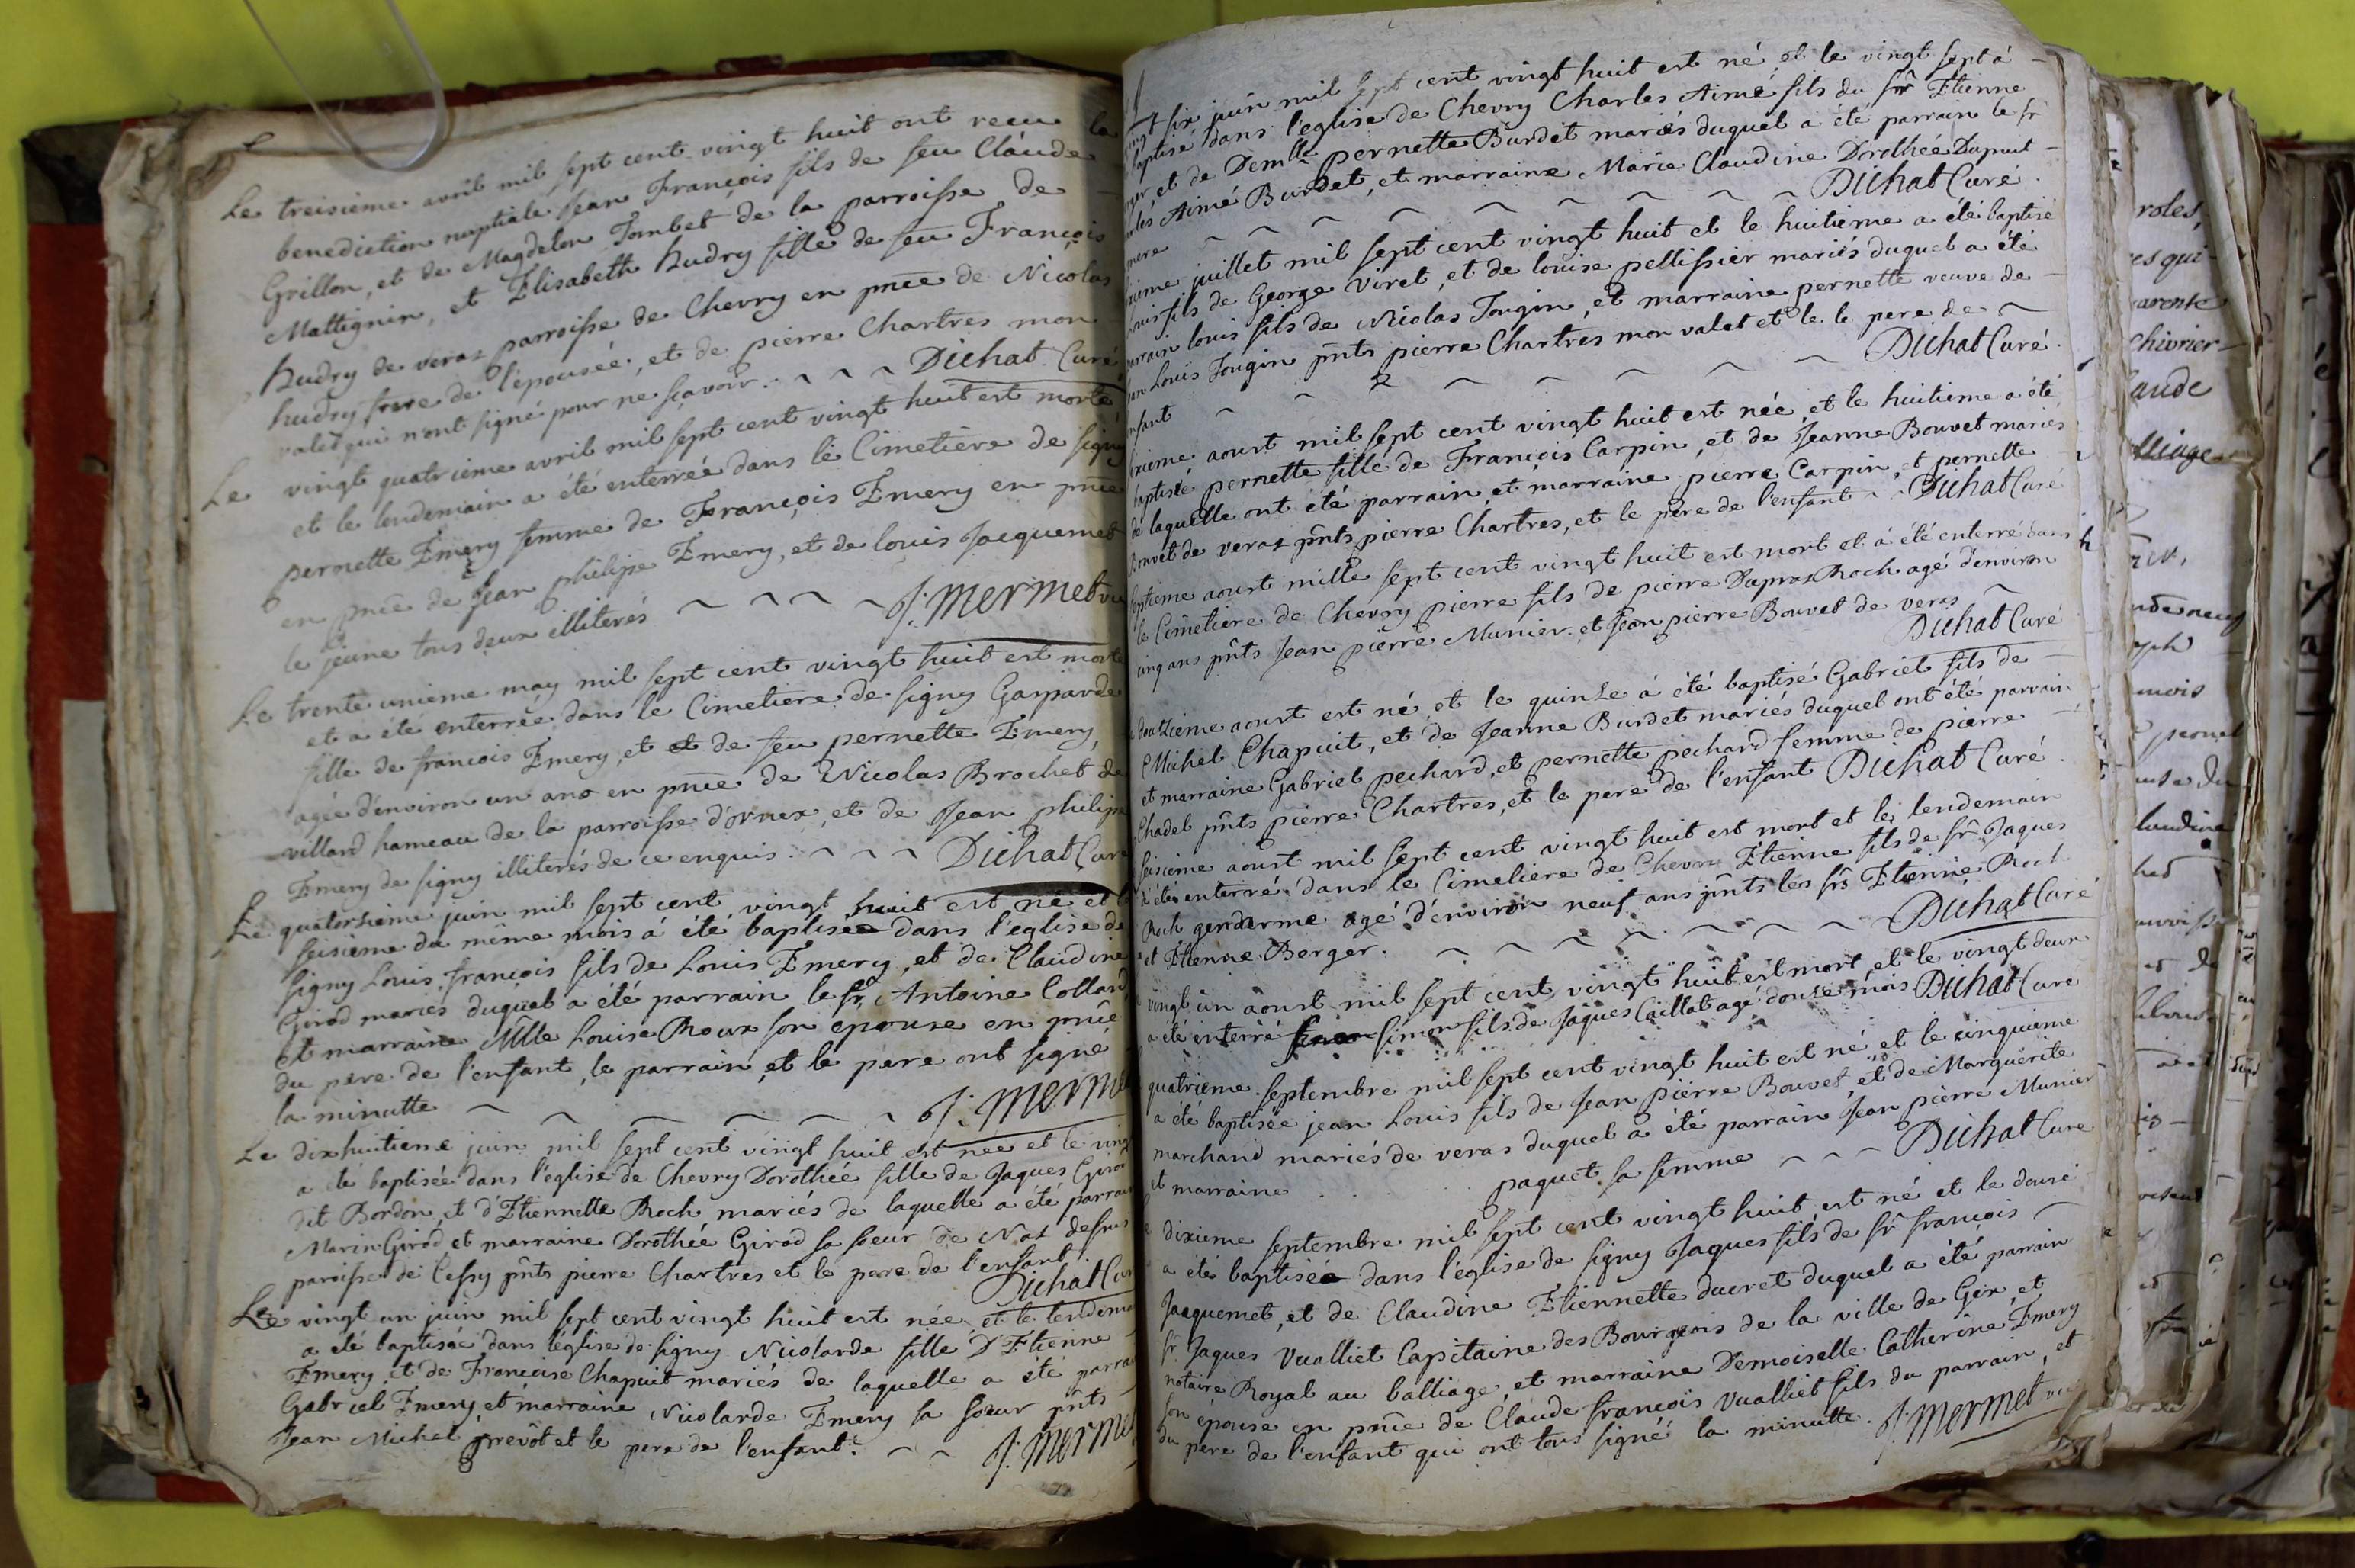 Le treisieme avril mil sept cent vingt huit ont recu la
benediction nuptiale Jean François fils de feu Claude
Grillon, et de Magdelon Tombet de la parroisse de
Mattignin, et Elisabeth hudry fille de feu François
hudry de veraz parroisse de Chevry en pnce de Nicolas
hudry frere de l'épousée, et de pierre Chartres mon
valet qui n'ont signé pour ne sçavoir. Dichat Curé
Le vingt quatrieme avril mil sept cent vingt huit est morte
et le lendemain a été enterrée dans le Cimetière de signy
pernette Emery femme de François Emery en pnce
en pnce de Jean philipe Emery, et de louis Jacquemet
le jeune tous deux illiterés J. Mermet
Le trente unieme may mil sept cent vingt huit est morte
et a été enterrée dans le Cimetiere de signy Gasparde
fille de francois Emery, et et de feu pernette Emery
agée d'environ un ans en pnce de Nicolas Brochet de
villard hameau de la parroisse d'ornex, et de Jean philipe
Emery de signy illiterés de ce enquis. Dichat Curé
Le quatorsieme juin mil sept cent vingt huit est né et le
seisieme du même mois à été baptisée dans l'eglise de
signy Louis françois fils de Louis Emery, et de Claudine
Girod mariés duquel a été parrain le sr Antoine Collard
et marraine Mlle Louise Roux son epouse en pnce
du père de l'enfant, le parrain et le pere ont signé
la minutte J. Mermet
Le dixhuitieme juin mil sept cent vingt huit est née et le vingt
a été baptisée dans l'église de Chevry Dorothée fille de Jaques Girod
dit Bordon, et d'Etiennette Roch mariés de laquelle a été parrain
Marin Girod, et marraine Dorothée Girod sa soeur de Naz dessus
paroisse de Cessy pnts pierre Chartres et le pere de l'enfant.
Dichat Curé
Le vingt un juin mil sept cent vingt huit est née et le lendemain
a été baptisée dans l'église de signy Nicolarde fille D'Etienne
Emery et de Francoise Chapuit mariés de laquelle a été parrain
Gabriel Emery, et marraine Nicolarde Emery sa soeur pnts
Jean Michel prevôt et le pere de l'enfant. J. Mermet
vingt six juin mil sept cent vingt huit est né et le vingt sept à
baptisé dans l'eglise de Chevry Charles Aimé fils du sr Etienne
et de Demlle pernette Burdet mariés duquel a été parrain le sr
Aimé Burdet, et marraine Marie Claudine Dorothée Dupuit
Dichat Curé.
juillet mil sept cent vingt huit et le huitieme a été baptisé
fils de George Viret, et de louise pellissier mariés duquel a été
parrain louis fils de Nicolas Tougin, et marraine pernette veuve de
Louis Tougin pnts pierre Chartres mon valet et le le pere de
enfant Dichat Curé.
aoust mil sept cent vingt huit est née, et le huitieme a été
baptisée pernette fille de François Carpin, et de Jeanne Bouvet mariés
de laquelle ont été parrain et marraine pierre Carpin, et pernette
Bouvet de veraz pnts pierre Chartres, et le père de l'enfant Dichat Curé
septieme aoust mille sept cent vingt huit est mort et à été enterré dans
le Cimetiere de Chevry pierre fils de pierre Dupraz Roch agé d'environ
cinq ans pnts Jean pierre Munier et Jean pierre Bouvet de veras
Dichat Curé
douzieme aoust est né, et le quinze à été baptisé Gabriel fils de
Michel Chapuit, et de Jeanne Burdet mariés duquel ont été parrain
et marraine Gabriel pechard, et pernette pechard femme de pierre
Chadel pnts pierre Chartres, et le pere de l'enfant Dichat Curé.
seisieme aoust mil sept cent vingt huit est mort et le lendemain
à été enterré dans le Cimetiere de Chevry Etienne fils de sr Jaques
Roch genderme agé d'environ neuf ans pnts les srs Etienne Roch
et Etienne Berger. Dichat Curé
vingt un aoust mil sept cent vingt huit est mort et le vingt deux
a été enterré simon fils de Jaques Caillat agé douze mois Dichat Curé
quatrieme septembre mil sept cent vingt huit est né, et le cinquieme
a été baptisée jean Louis fils de Jean pierre Bouvet, et de Marguerite
marchand mariés de veras duquel a été parrain Jean pierre Munier
et marraine paquet sa femme Dichat Curé
dixieme septembre mil sept cent vingt huit est né et le douze
a été baptisée dans l'église de signy Jaques fils de sr françois
Jacquemet, et de Claudine Etiennette ducret duquel a été parrain
sr Jaques Vualliet Capitaine des Bourgeois de la ville de Gex, et
notaire Royal au balliage, et marraine Demoiselle Catherine Emery
son épouse en pnce de Claude françois Vualliet fils du parrain, et
du pere de l'enfant qui ont tous signé la minutte. J. Mermet